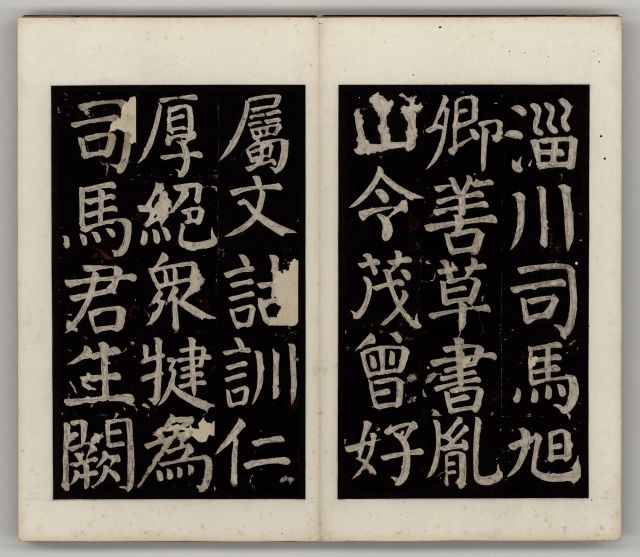 淄川司馬旭
卿善草書胤
山令茂曾好
屬文詁訓仁
厚絕眾犍為
司馬君生闕